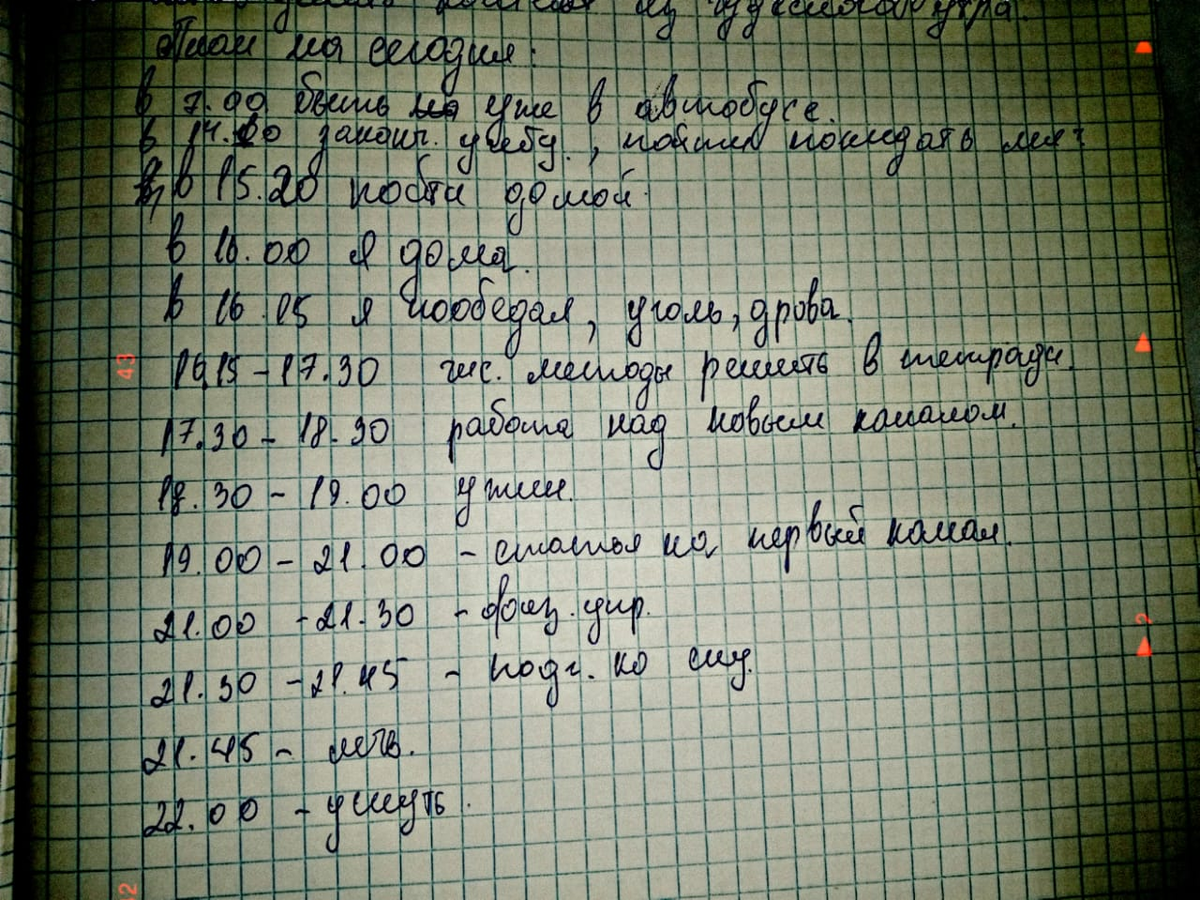 из чудесного утра.
План на сегодня:
в 7.00 быть уже в автобусе.
в 14.20 законч. учебу, пойти покидать мяч
в 15.20 пойти домой.
в 16.00 я дома.
в 16.15 я пообедал, уголь, дрова.
16,15 - 17.30 чис. методы решить в тетради.
17.30 - 18.30 работа над новым каналом.
18.30 - 19.00 ужин.
19.00 - 21.00 - статья на первый канал.
21.00 - 21.30 - физ. упр.
21.30 - 21.45 - подг. ко сну.
21.45 - лечь.
22.00 - уснуть.